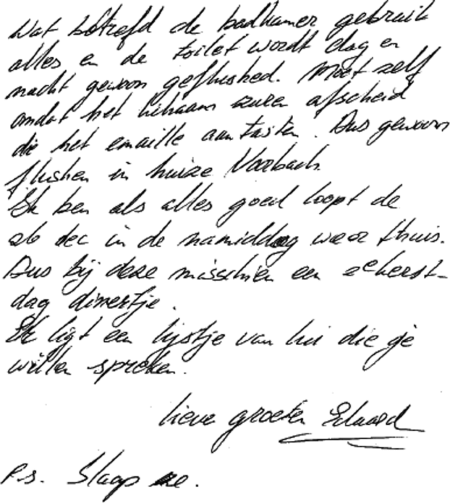 Wat betrefd de badkamer gebruik
alles en de toilet wordt dag en
nacht gewoon geflushed. Moet zelf
omdat het lichaam zuren afscheid
die het emaille aantasten. Dus gewoon
flushen in huize
Ik ben als alles goed loopt de
26 dec in de namiddag weer thuis.
Dus bij deze misschien een 2e kerst-
dag dinertje.
Er ligt een lijstje van lui die je
willen spreken.
lieve groeten Eduard
P.S. Slaap ze.